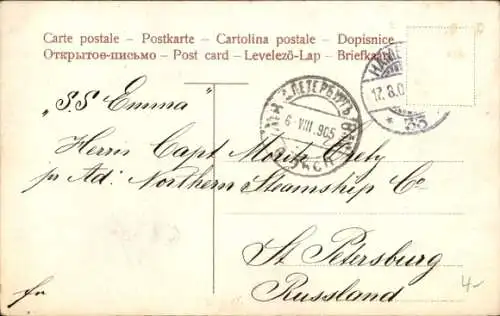 Carte postale – Postkarte – Cartolina postale – Dopisnice
Открытое-письмо – Post card – Levelező-Lap – Briefkaart
"S.S. Emma"
С.ПЕТЕРБУРГЪ
6·VIII.905
17.8.0
* 33
Herrn Capt Moritz
pr Ad: Northern Steamship Co
St Petersburg
Russland
fr
4-